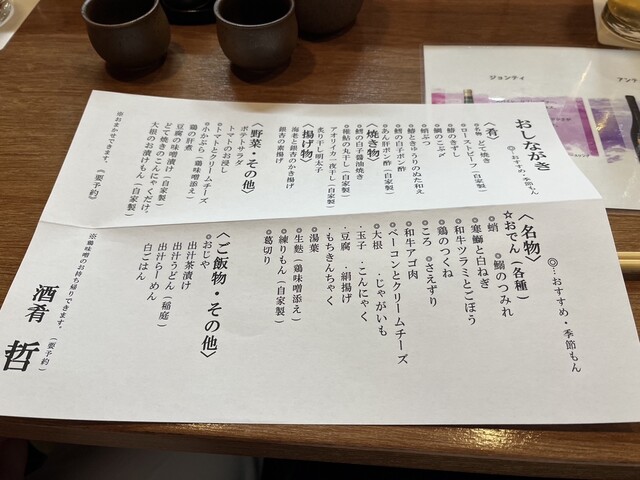 おしながき
◎…おすすめ・季節もん
〈肴〉
◎名物 どて焼き
◎ローストビーフ(自家製)
◎鰆のきずし
◎鯛のこぶ〆
◎蛸ぶつ
◎鯵ときゅうりのぬた和え
◎鱈の白子ポン酢
◎あん肝ポン酢(自家製)
〈焼き物〉
◎鱈の白子醤油焼き
◎稚鮎の丸干し(自家製)
アオリイカ一夜干し(自家製)
炙り干し明太子
〈揚げ物〉
海老と銀杏のかき揚げ
銀杏の素揚げ
〈野菜・その他〉
ポテトサラダ
トマトのお浸し
◎トマトとクリームチーズ
◎小かぶら(鶏味噌添え)
鶏の肝煮
豆腐の味噌漬け(自家製)
どて焼きのこんにゃくだけ。
大根のお漬けもん(自家製)
※おまかせできます。(要予約)
〈名物〉
◎…おすすめ・季節もん
☆おでん(各種)
◎蛸
◎鰯のつみれ
◎寒鰤と白ねぎ
◎和牛ツラミとごぼう
◎鶏のつくね
◎ころ
◎さえずり
◎和牛アゴ肉
◎ベーコンとクリームチーズ
◎大根
・じゃがいも
・玉子
・こんにゃく
・豆腐
・絹揚げ
・もちきんちゃく
◎湯葉
◎生麩(鶏味噌添え)
◎練りもん(自家製)
◎葛切り
〈ご飯物・その他〉
◎おじや
出汁茶漬け
出汁うどん(稲庭)
出汁らーめん
白ごはん
※鶏味噌のお持ち帰りできます。(要予約)
酒肴 哲
ジョンティ
アンテ